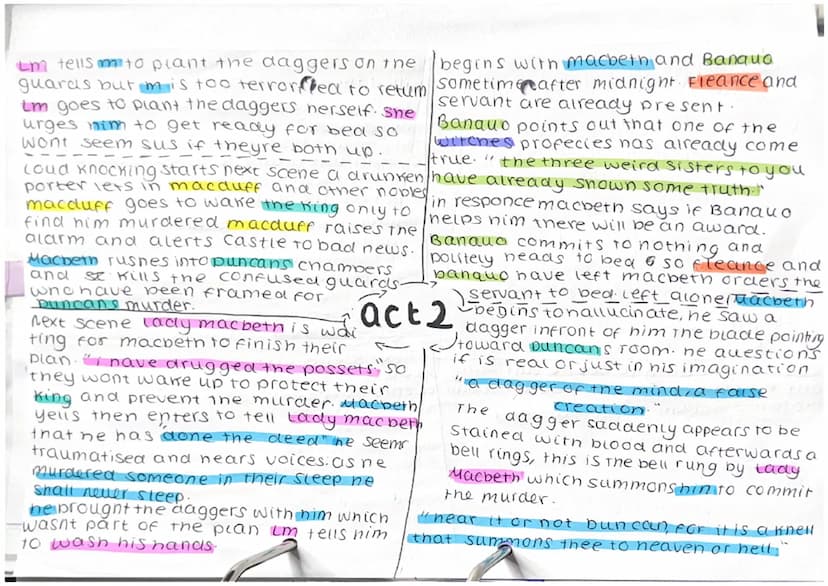 Lm tells m to plant the daggers on the
guards but m is too terrorfied to return
Lm goes to plant the daggers herself. she
urges him to get ready for bed so
wont seem sus if theyre both up.
Loud knocking starts next scene a drunken
porter lets in macduff and other nobles
macduff goes to wake the king only to
find him murdered macduff raises the
alarm and alerts castle to bad news.
Macbeth rushes into Duncans chambers
and kills the confused guards
who have been framed for
Duncans murder.
Next scene Lady macbeth is wai
ting for macbeth to finish their
plan. "i have drugged the possets" so
they wont wake up to protect their
King and prevent the murder. Macbeth
yells then enters to tell Lady macbeth
that he has "done the deed" he seems
traumatised and hears voices. as he
murdered someone in their sleep he
shall never sleep.
he brought the daggers with him which
wasnt part of the plan Lm tells him
to wash his hands.
act 2
begins with macbeth and Banquo
sometime after midnight. Fleance and
servant are already present.
Banquo points out that one of the
witches profecies has already come
true. "the three weird sisters to you
have already shown some truth."
in responce macbeth says if Banquo
helps him there will be an award.
Banquo commits to nothing and
politely heads to bed so fleance and
banquo have left macbeth orders the
servant to bed. left alone Macbeth
begins to hallucinate, he saw a
dagger infront of him the blade pointing
toward Duncans room. he questions
if is real or just in his imagination
"a dagger of the mind, a false
creation."
The dagger suddenly appears to be
stained with blood and afterwards a
bell rings, this is the bell rung by Lady
Macbeth which summons him to commit
the murder.
"hear it or not duncan, for it is a knell
that summons thee to heaven or hell."